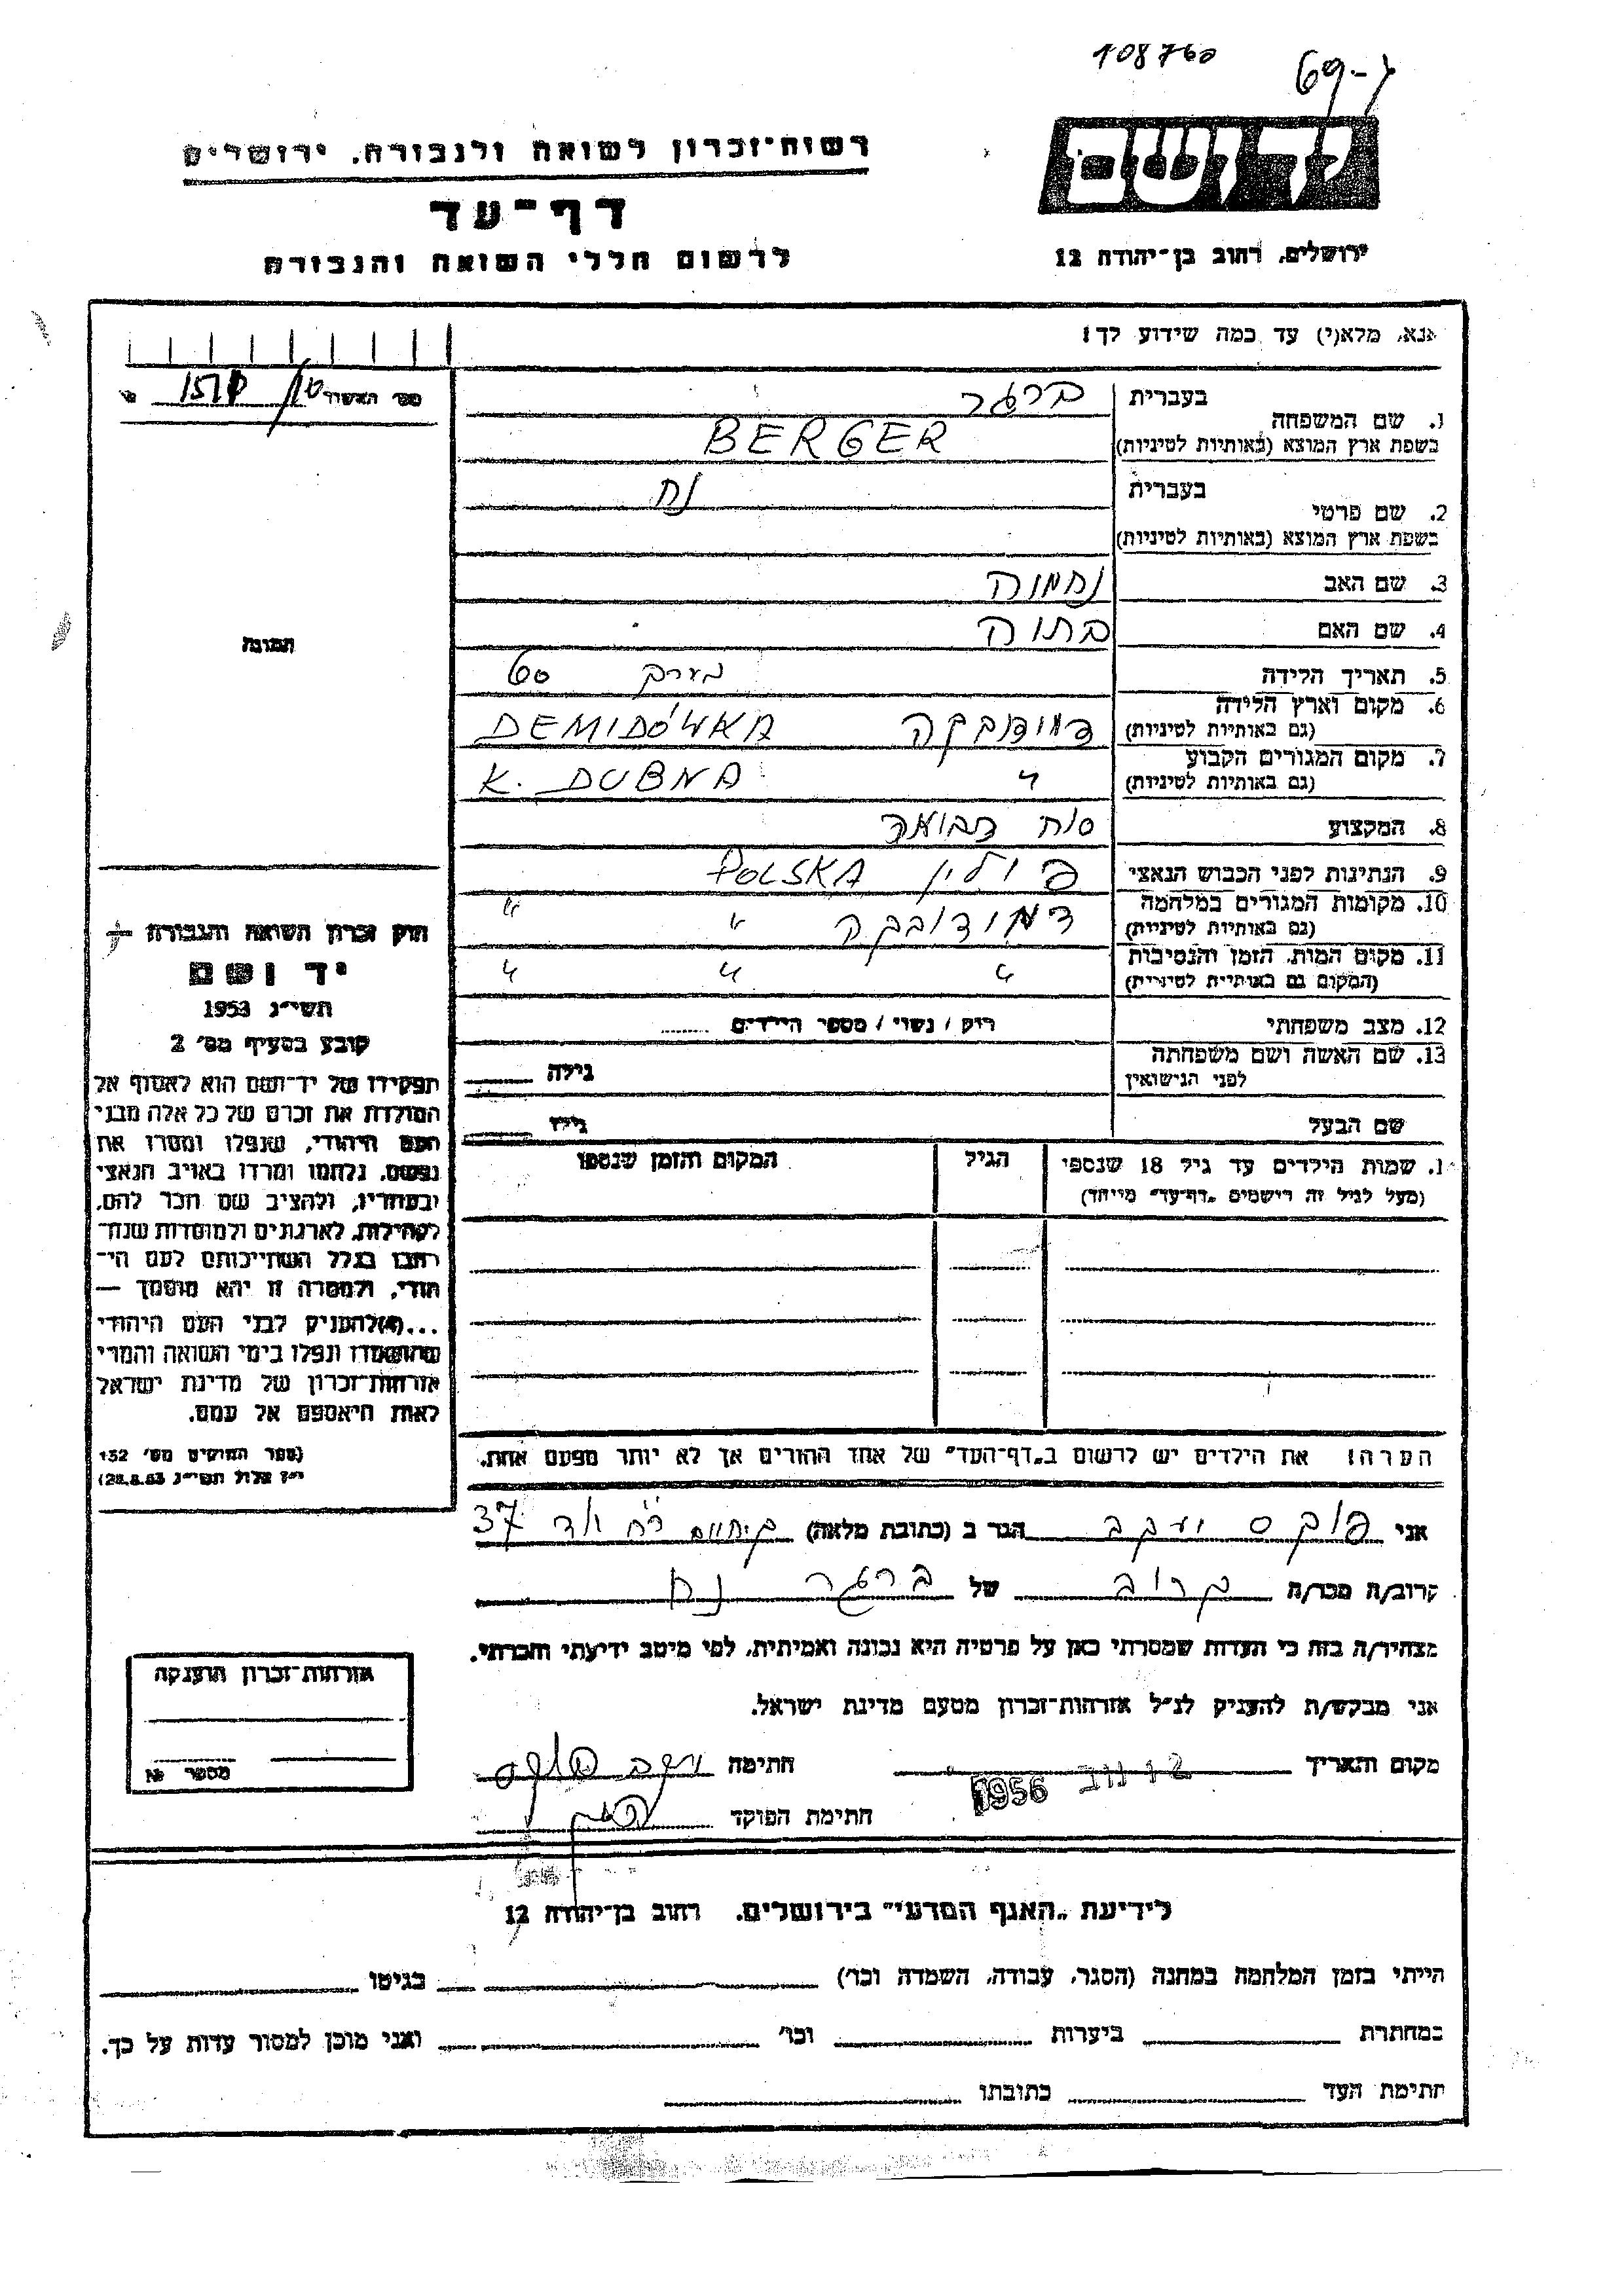 108760
69-
יד ושם
רשות־זכרון לשואה ולגבורה, ירושלים
דף־עד
לרשום חללי השואה והגבורה
ירושלים, רחוב בן־יהודה 12
אנא, מלא(י) עד כמה שידוע לך!
מס׳ האשה
בעברית ברגר
1. שם המשפחה
בשפת ארץ המוצא (באותיות לטיניות) BERGER
בעברית נח
2. שם פרטי
בשפת ארץ המוצא (באותיות לטיניות)
3. שם האב נחמיה
4. שם האם בתיה
5. תאריך הלידה בערך 60
6. מקום וארץ הלידה דמידובקה DEMIDÓWKA
(גם באותיות לטיניות)
7. מקום המגורים הקבוע " K. DUBNA
(גם באותיות לטיניות)
8. המקצוע סוח תבואה
9. הנתינות לפני הכבוש הנאצי פולין POLSKA
10. מקומות המגורים במלחמה דמידובקה " "
(גם באותיות לטיניות)
11. מקום המות, הזמן והנסיבות " " "
(המקום גם באותיות לטיניות)
12. מצב משפחתי רוק / נשוי / מספר הילדים
13. שם האשה ושם משפחתה גילה
לפני הנישואין
שם הבעל גילו
1. שמות הילדים עד גיל 18 שנספו הגיל המקום והזמן שנספו
(מעל לגיל זה רישמים „דף־עד" מייחד)
הערה: את הילדים יש לרשום ב„דף־העד" של אחד ההורים אך לא יותר מפעם אחת.
תמונה
חוק זכרון השואה והגבורה –
יד ושם
תשי״ג 1953
קובע בסעיף מס׳ 2
תפקידו של יד־ושם הוא לאסוף אל
המולדת את זכרם של כל אלה מבני
העם היהודי, שנפלו ומסרו את
נפשם, נלחמו ומרדו באויב הנאצי
ובעוזריו, ולהציב שם וזכר להם,
לקהילות, לארגונים ולמוסדות שנח־
רבו בגלל השתייכותם לעם הי־
הודי, ולמטרה זו יהא מוסמך —
...(4)להעניק לבני העם היהודי
שהושמדו ונפלו בימי השואה והמרי
אזרחות־זכרון של מדינת ישראל
לאות היאספם אל עמם.
(ספר החוקים מס׳ 132
י״ז אלול תשי״ג 28.8.53)
אני פוקס יעקב הגר ב (כתובת מלאה) 37
קרוב/ה מכר/ה קרוב של ברגר נח
מצהיר/ה בזה כי העדות שמסרתי כאן על פרטיה היא נכונה ואמיתית, לפי מיטב ידיעתי והכרתי.
אני מבקש/ת להעניק לנ״ל אזרחות־זכרון מטעם מדינת ישראל.
מקום ותאריך נוב 1956 חתימה יעקב פוקס
חתימת הפוקד
אזרחות־זכרון הוענקה
מספר №
לידיעת „האגף המדעי" בירושלים, רחוב בן־יהודה 12
הייתי בזמן המלחמה במחנה (הסגר, עבודה, השמדה וכו׳) בגיטו
במחתרת ביערות וכו׳ ואני מוכן למסור עדות על כך.
חתימת העד כתובתו